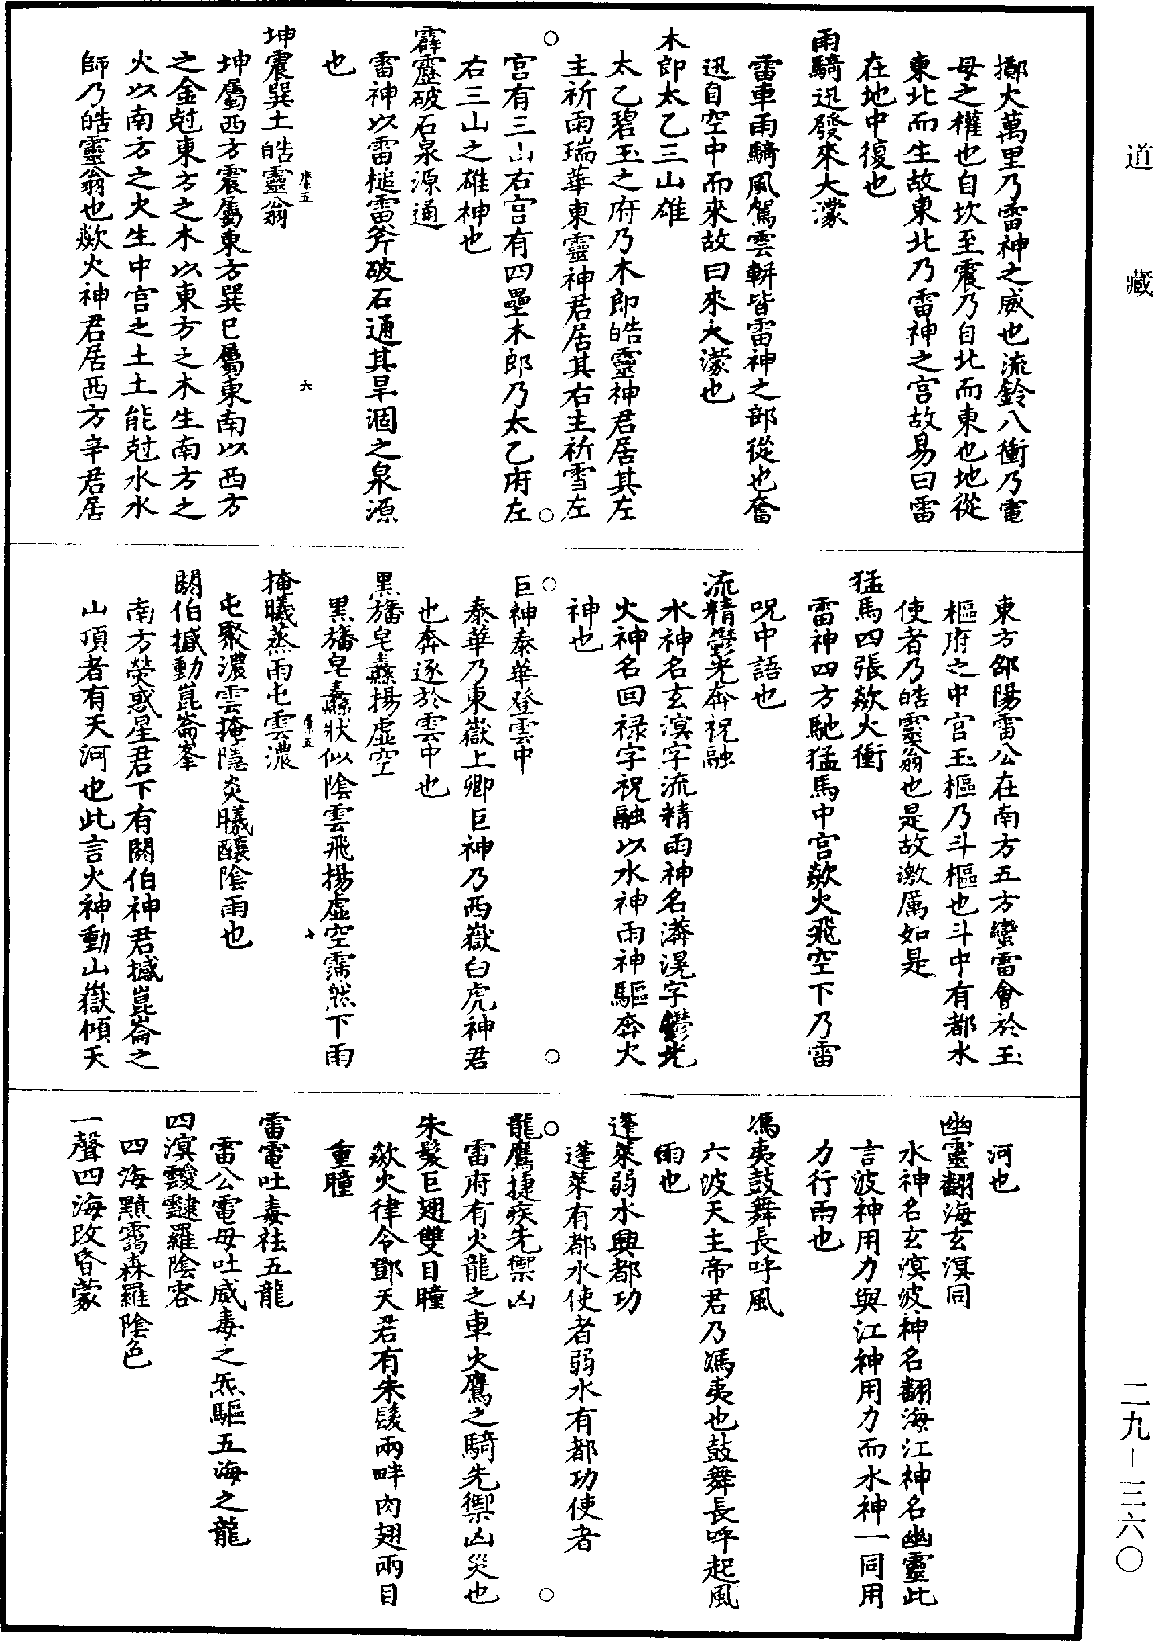 道藏
擲火萬里乃雷神之威也流鈴八衝乃電
母之權也自坎至震乃自北而東也地從
東北而生故東北乃雷神之宮故易曰雷
在地中復也
雨騎迅發來大濛
雷車雨騎風駕雲軿皆雷神之部從也奮
迅自空中而來故曰來大濛也
木郎太乙三山雄
太乙碧玉之府乃木郎皓靈神君居其左
主祈雨瑞華東靈神君居其右主祈雪左
宮有三山右宮有四壘木郎乃太乙府左
右三山之雄神也
霹靂破石泉源通
雷神以雷槌雷斧破石通其旱涸之泉源
也
六
坤震巽土皓靈翁
坤屬西方震屬東方巽巳屬東南以西方
之金尅東方之木以東方之木生南方之
火以南方之火生中宮之土土能尅水水
師乃皓靈翁也歘火神君居西方辛君居
東方郤陽雷公在南方五方蠻雷會於玉
樞府之中宮玉樞乃斗樞也斗中有都水
使者乃皓靈翁也是故激厲如是
猛馬四張歘火衝
雷神四方馳猛馬中宮歘火飛空下乃雷
呪中語也
流精鬱光奔祝融
水神名玄溟字流精雨神名漭滉字鬱光
火神名回祿字祝融以水神雨神驅奔火
神也
巨神泰華登雲中
泰華乃東嶽上卿巨神乃西嶽白虎神君
也奔逐於雲中也
黑旛皂纛揚虛空
黑旛皂纛狀似陰雲飛揚虛空霈然下雨
掩曦蒸雨屯雲濃
屯聚濃雲掩隱炎曦釀陰雨也
閼伯撼動崑崙峯
南方熒惑星君下有閼伯神君撼崑崙之
山頂者有天河也此言火神動山嶽傾天
河也
幽靈翻海玄溟同
水神名玄溟波神名翻海江神名幽靈此
言波神用力與江神用力而水神一同用
力行雨也
馮夷鼓舞長呼風
六波天主帝君乃馮夷也鼓舞長呼起風
雨也
蓬萊弱水興都功
蓬萊有都水使者弱水有都功使者
龍鷹捷疾先禦凶
雷府有火龍之車火鷹之騎先禦凶災也
朱髮巨翅雙目瞳
歘火律令鄧天君有朱髮兩畔肉翅兩目
重瞳
雷電吐毒祛五龍
雷公電母吐威毒之炁驅五海之龍
四溟靉靆羅陰容
四海黯靄森羅陰色
一聲四海改昏蒙
二九-三六〇